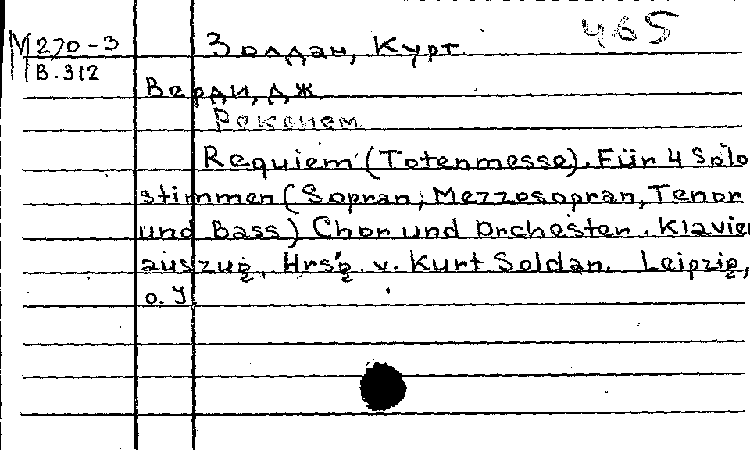 465
М 270-3 Золдан, Курт
B.312
Верди, Дж
Реквием
Requiem (Totenmesse). Für 4 Solo
stimmen (Sopran, Mezzosopran, Tenor
und Bass) Chor und Orchester. Klavier
auszug, Hrs'g v. Kurt Soldan. Leipzig,
o. J